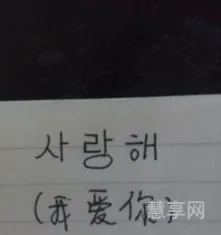 사랑해
(我爱你)
慧享网